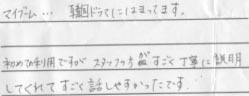 マイブーム… 韓国ドラマにはまってます。
初めて利用ですが スタッフの方が すごく丁寧に説明
してくれてすごく話しやすかったです。